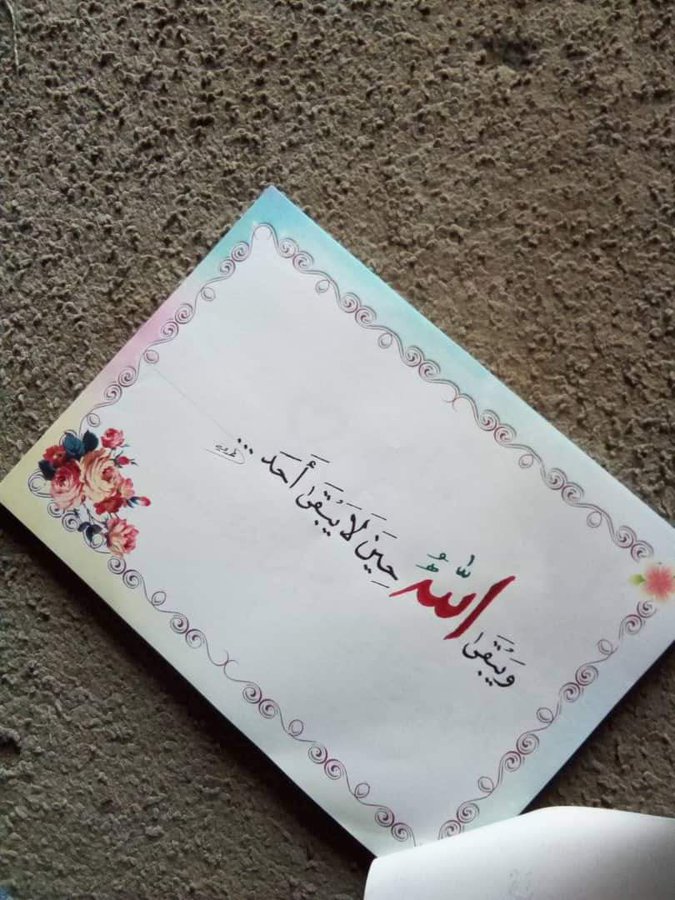 وَيَبْقَىٰ اللّٰهُ حِينَ لَا يَبْقَىٰ أَحَد...